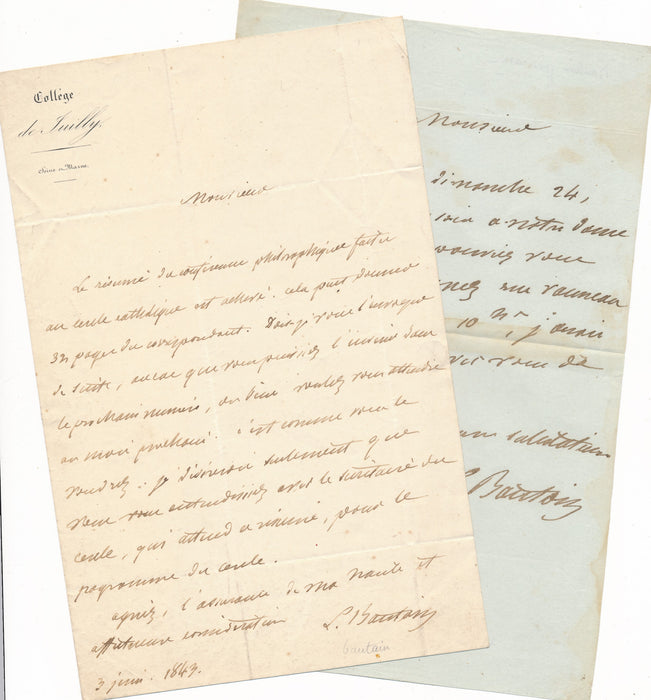 Collège
de Juilly.
Seine et Marne.
Monsieur
Le résumé du conférences philosophiques fait au
au cercle catholique est achevé. cela peut donner
32 pages du correspondant. Dois-je vous l'envoyer
de suite, afin que vous puissiez l'insérer dans
le prochain numéro, ou bien voulez vous attendre
au mois prochain. c'est comme vous le
voudrez. je désirerois seulement que
vous vous entendissiez avec le secrétaire du
cercle, qui attend ce résumé, pour le
programme du cercle.
agréez, l'assurance de ma haute et
affectueuse considération
L. Bautain
bautain
3 juin. 1843.
Monsieur
dimanche 24,
soir a notre dame
pourriez vous
rez me
10 h, j'aurai
vous de
salutations
Bautain